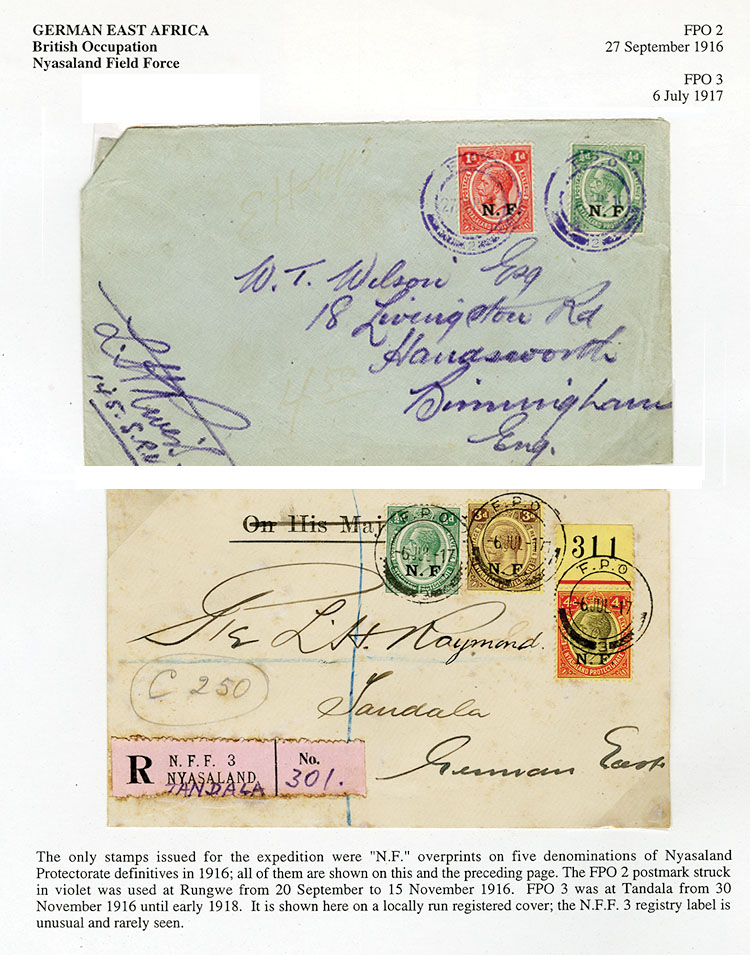 GERMAN EAST AFRICA
British Occupation
Nyasaland Field Force
FPO 2
27 September 1916
FPO 3
6 July 1917
F.P.O
27
2
1d 1d
POSTAGE
NYASALAND PROTECTORATE
N. F.
F.P.O
2
½d
NYASALAND PROTECTORATE
N. F.
W. T. Wilson Esq
18 Livingston Rd
Handsworth
Birmingham
Eng.
On His Maj
F.P.O
-6 JUL-17
N. F.
F.P.O
-6 JUL-17
N. F.
311
F.P.O
-6 JUL-17
3
4d 4d
N. F.
NYASALAND PROTECTORATE
L. H. Raymond.
Tandala
German East
C 250
R
N. F. F. 3
NYASALAND
TANDALA
No.
301.
The only stamps issued for the expedition were "N.F." overprints on five denominations of Nyasaland
Protectorate definitives in 1916; all of them are shown on this and the preceding page. The FPO 2 postmark struck
in violet was used at Rungwe from 20 September to 15 November 1916. FPO 3 was at Tandala from 30
November 1916 until early 1918. It is shown here on a locally run registered cover; the N.F.F. 3 registry label is
unusual and rarely seen.